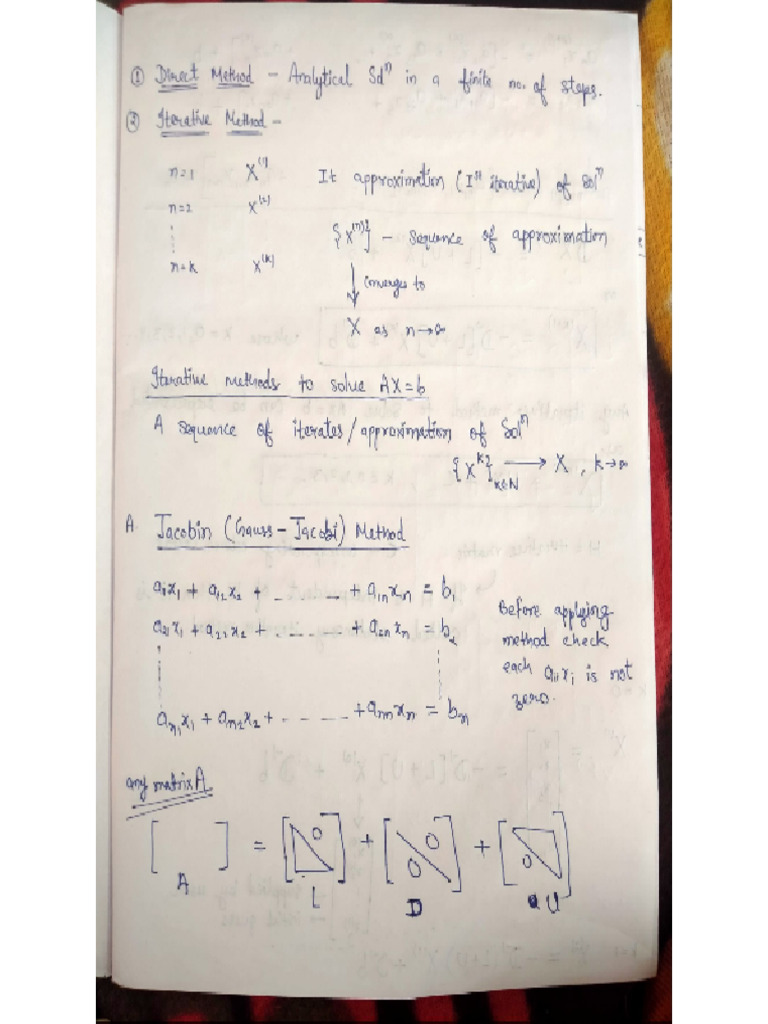 ① Direct Method - Analytical Solⁿ in a finite no. of steps.
② Iterative Method -
n=1 X⁽¹⁾ It approximation (Iˢᵗ iterative) of Solⁿ
n=2 X⁽²⁾
{X⁽ⁿ⁾} - Sequence of approximation
n=k X⁽ᵏ⁾
↓ Converges to
X as n→∞
Iterative methods to solve AX=b
A sequence of iterates/approximation of Solⁿ
{Xᵏ}ₖ∈N ⟶ X, k→∞
A. Jacobin (Gauss-Jacobi) Method
a₁₁x₁ + a₁₂x₂ + ------ + a₁ₙxₙ = b₁
a₂₁x₁ + a₂₂x₂ + ------ + a₂ₙxₙ = b₂
aₙ₁x₁ + aₙ₂x₂ + ------ + aₙₙxₙ = bₙ
Before applying
method check
each aᵢᵢxᵢ is not
zero.
any matrix A
[ ] = [ 0 ] + [ 0 0 ] + [ 0 ]
A L D U